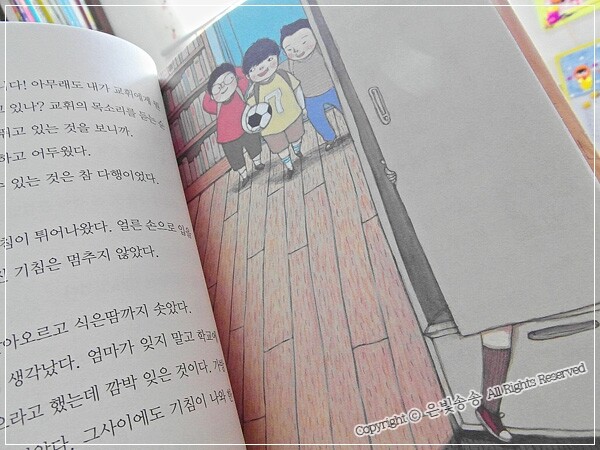 니다! 아무래도 내가 교휘에게
고 있나? 교휘의 목소리를 듣는 순
쥐고 있는 것을 보니까.
하고 어두웠다.
수 있는 것은 참 다행이었다.
침이 튀어나왔다. 얼른 손으로 입을
기침은 멈추지 않았다.
아오르고 식은땀까지 솟았다.
생각났다. 엄마가 잊지 말고 학교에
으라고 했는데 깜박 잊은 것이다.
았다. 그사이에도 기침이 나와
7
Copyright © 은빛송송 All Rights Reserved